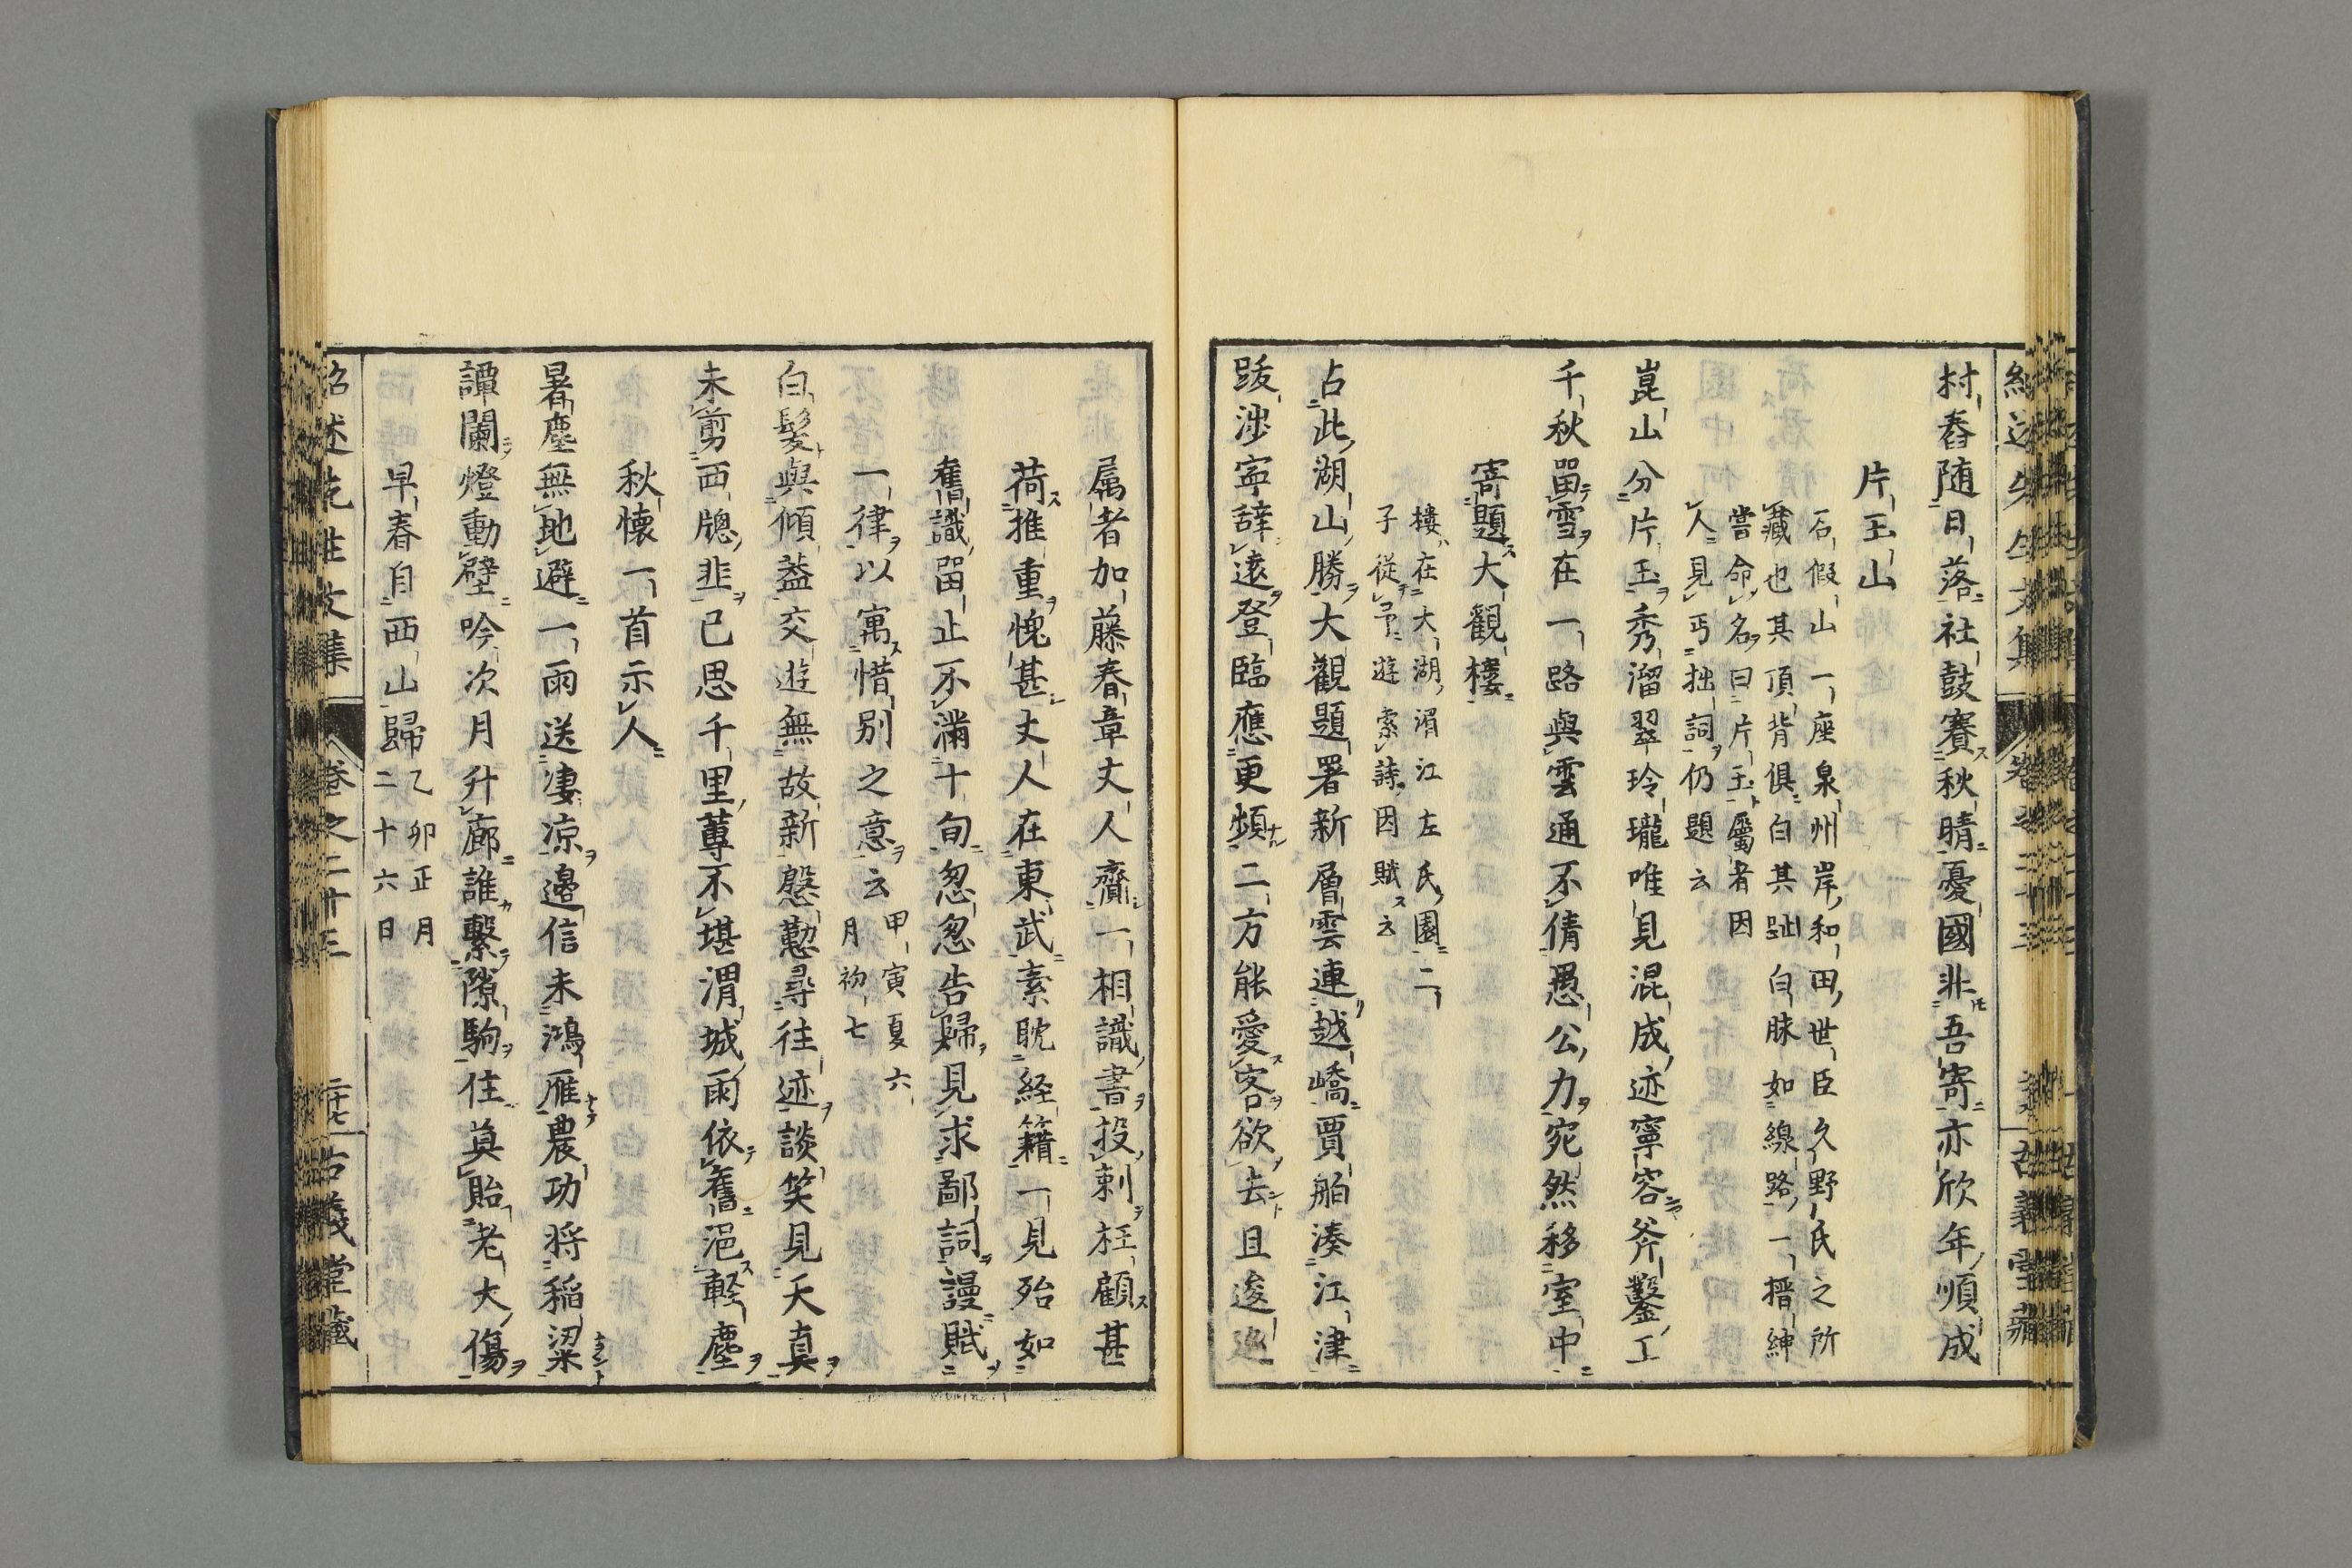 村舂随日落社鼓賽秋晴憂國非吾寄亦欣年順成
片玉山
石假山一座泉州岸和田世臣久野氏之所
藏也其頂背俱白其趾白脉如線路一搢紳
嘗命名曰片玉屬者因
人見丐拙詞仍題云
崑山分片玉秀溜翠玲瓏唯見混成迹寧容斧鑿工
千秋畱雪在一路與雲通不倩愚公力宛然移室中
寄題大觀樓
樓在大湖湄江左氏園二
子從予遊索詩因賦云
占此湖山勝大觀題署新層雲連越嶠賈舶湊江津
跋渉寧辞遠登臨應更頻二方能愛客欲去且逡巡
紹述先生文集
卷之二十三
古義堂藏
属者加藤春章丈人齎一相識書投剌枉顧甚
荷推重愧甚丈人在東武素耽経籍一見殆如
舊識畱止不滿十旬怱怱告歸見求鄙詞謾賦
一律以寓惜別之意云
甲寅夏六
月初七
白髪與傾蓋交遊無故新慇懃尋往迹談笑見天真
未剪西牕韭已思千里蓴不堪渭城雨依舊浥軽塵
秋懐一首示人
暑塵無地避一雨送凄凉邉信未鴻雁農功将稲粱
譚闌燈動壁吟次月升廊誰繫隙駒住莫貽老大傷
早春自西山歸
乙卯正月
二十六日
紹述先生文集
卷之二十三
二十七
古義堂藏